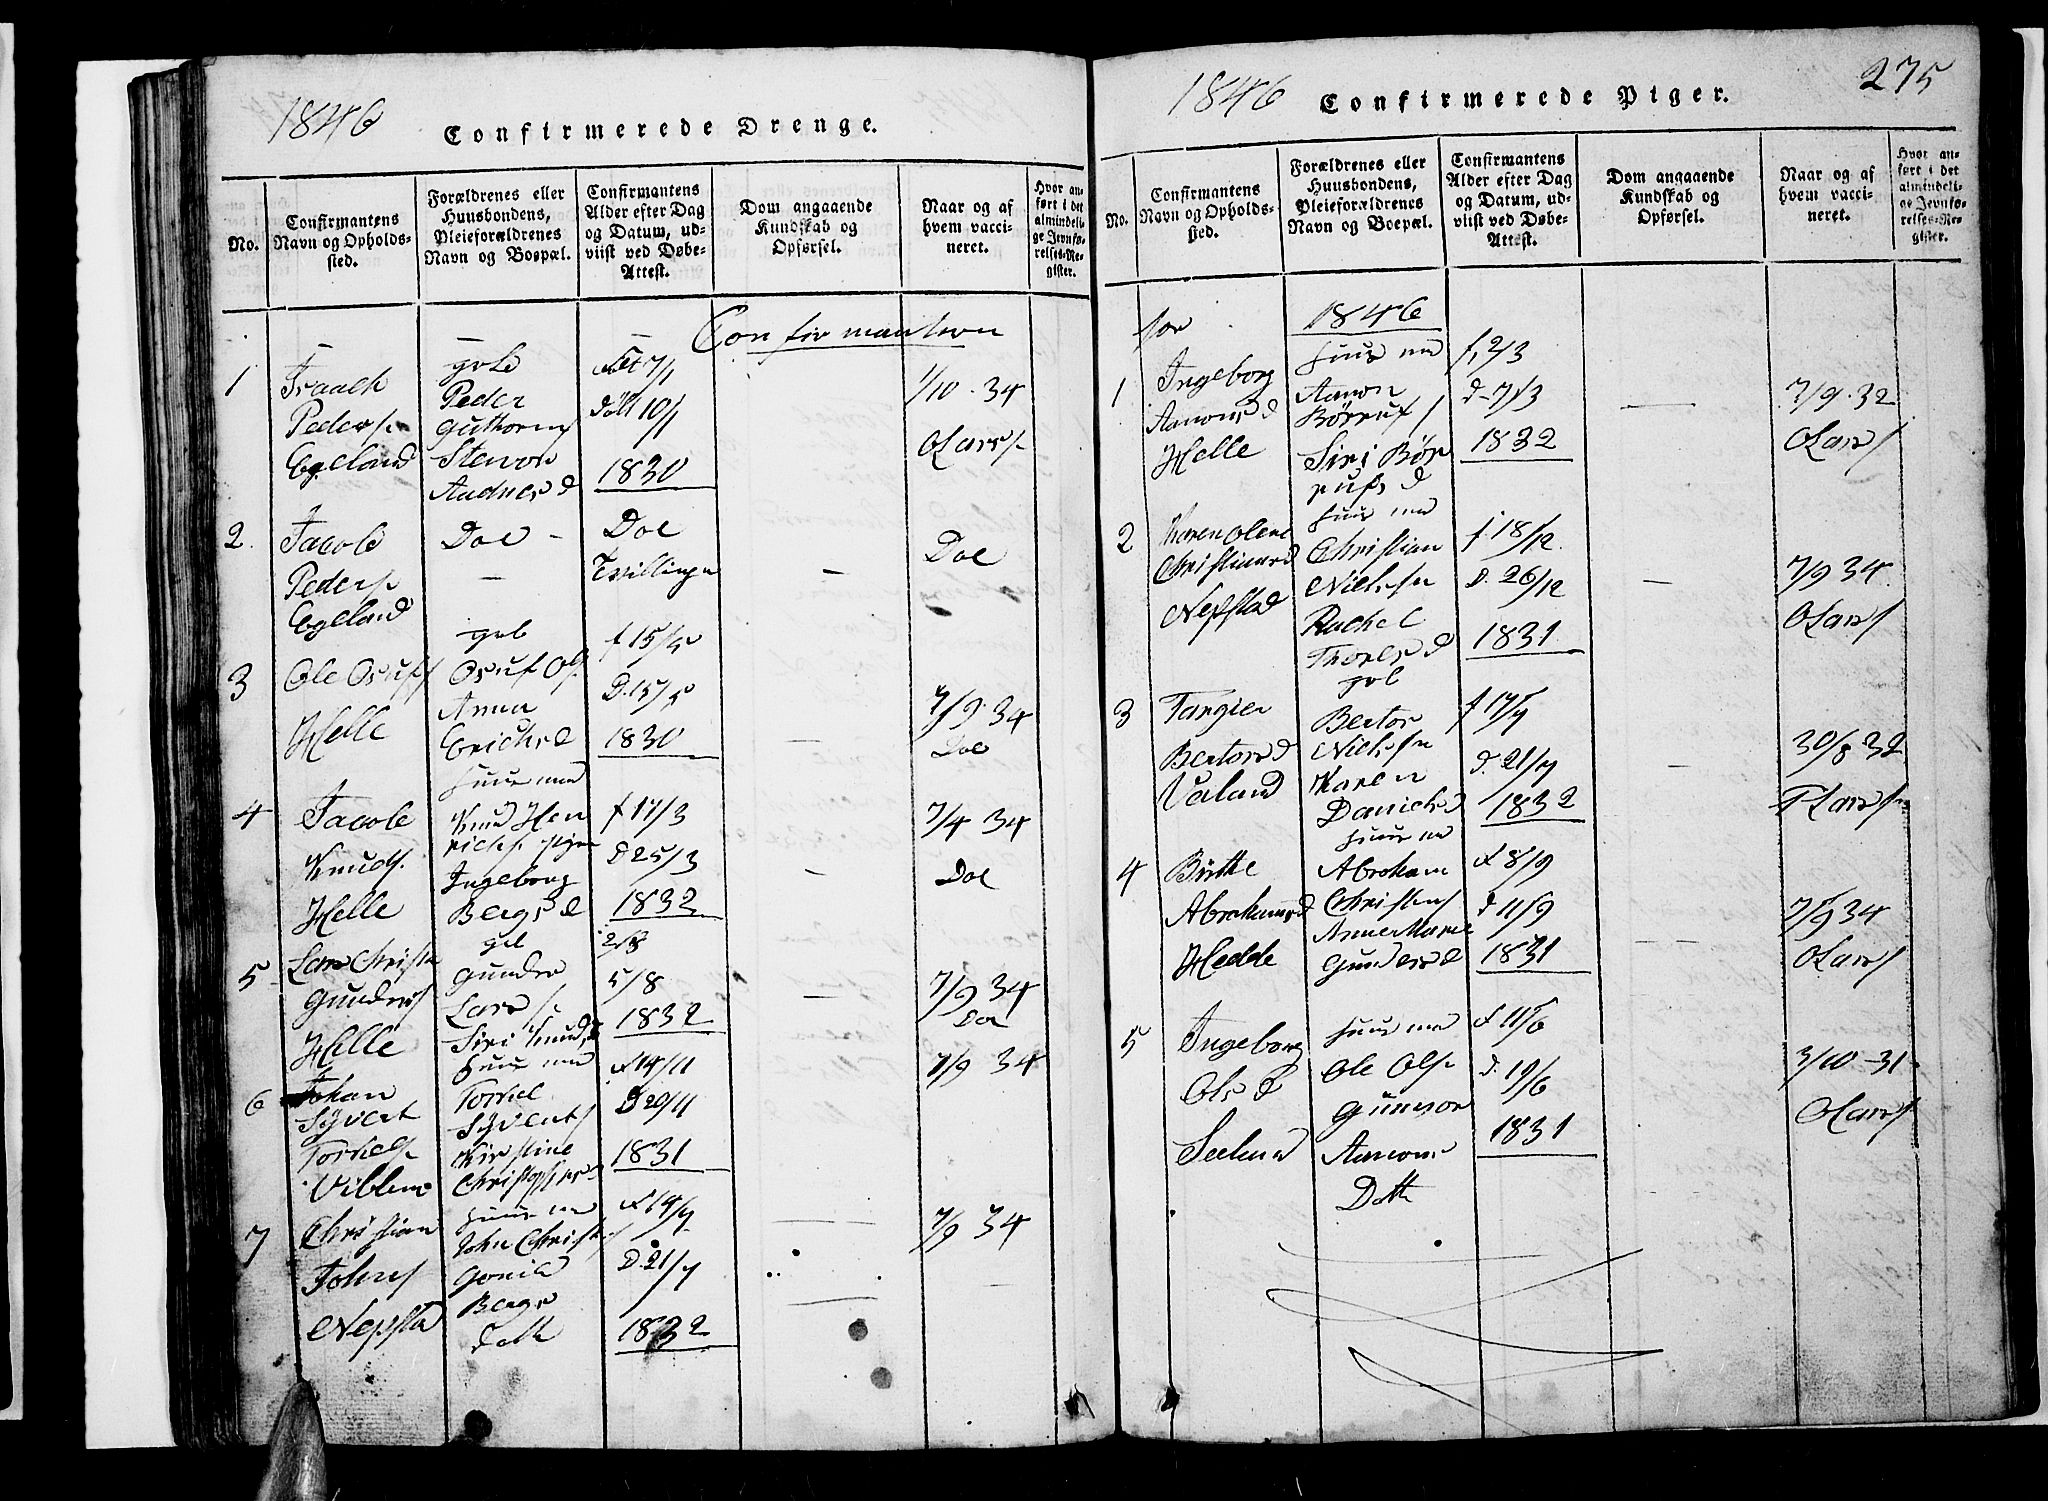 1846
Confirmerede Drenge.
No.
Confirmantens Navn og Opholds-
sted.
Forældrenes eller
Huusbondens,
Pleieforældrenes
Navn og Boepæl.
Confirmantens
Alder efter Dag
og Datum, ud-
viist ved Døbe-
Attest.
Dom angaaende
Kundskab og
Opførsel.
Naar og af
hvem vacci-
neret.
Hvor an-
ført i det
almindeli-
ge Jevnfø-
relses-Re-
gister.
Confirmantern
1
Peders
Egeland
Peder
Guthorms
Stenvor
Audnesd
7/1
10/1
1830
1/10. 34
OLars
2.
Jacob
Peders
Egeland
Do
Do
Tvillinger
Do
3
Ole Osufs
Helle
Osuf Ols
Anna
Erichsd
f 15/5
D. 15/5
1830
7/9. 34
Do
4
Jacob
Knuds.
Helle
Huus md
Knud Hen
richs
Ingeborg
Bergsd
f 17/3
D 25/3
1832
7/4 34
Do
5
Lars Christn
Gunders
Helle
Gunder
Lars
Siri Knudsd
5/8
1832
7/9 34
Do
6
Johan
Syvert
Torkels
Viblemo
Huus md
Torkel
Syverts
Kirstine
Christophers
f 14/11
D 20/11
1831
7/9 34
7
Christian
Johns
Nepsta
Huus md
John Christ
Gonild
Bergs
Datt
f 14/7
D. 21/7
1832
7/9 34
1846
Confirmerede Piger.
275
No.
Confirmantens
Navn og Opholds-
sted.
Forældrenes eller
Huusbondens,
Pleieforældrenes
Navn og Boepæl.
Confirmantens
Alder efter Dag
og Datum, ud-
viist ved Døbe-
Attest.
Dom angaaende
Kundskab og
Opførsel.
Naar og af
hvem vacci-
neret.
Hvor an-
ført i det
almindeli-
ge Jevnfø-
relses-Re-
gister.
for
1846
1
Ingeborg
Aanonsd
Helle
Huus md
Aanon
Børrufs
Siri Bør
rufs d
f. 2/3
d. 7/3
1832
7/9. 32
OLars
2
Karen Olene
Christiansd
Nepstad
Huus md
Christian
Nielsen
Rachel
Thores d
f. 18/12.
D. 26/12
1831
7/9 34.
OLars
3
Tangier
Bertorsd
Valand
Bertor
Nielsen
Karen
Danielsd
f 17/7
d. 21/7
1832
30/8 32
Lars
4
Birthe
Abrahamsd
Hedde
Huus md
Abraham
Christens
Anne Marie
Gundersd
f 8/9
d 11/9
1831
7/9 34
OLars
5
Ingeborg
Ols d
Huus md
Ole Ols
Gunvor
Aanons
Datt
f 11/6
d. 19/6
1831
3/10-31
OLars